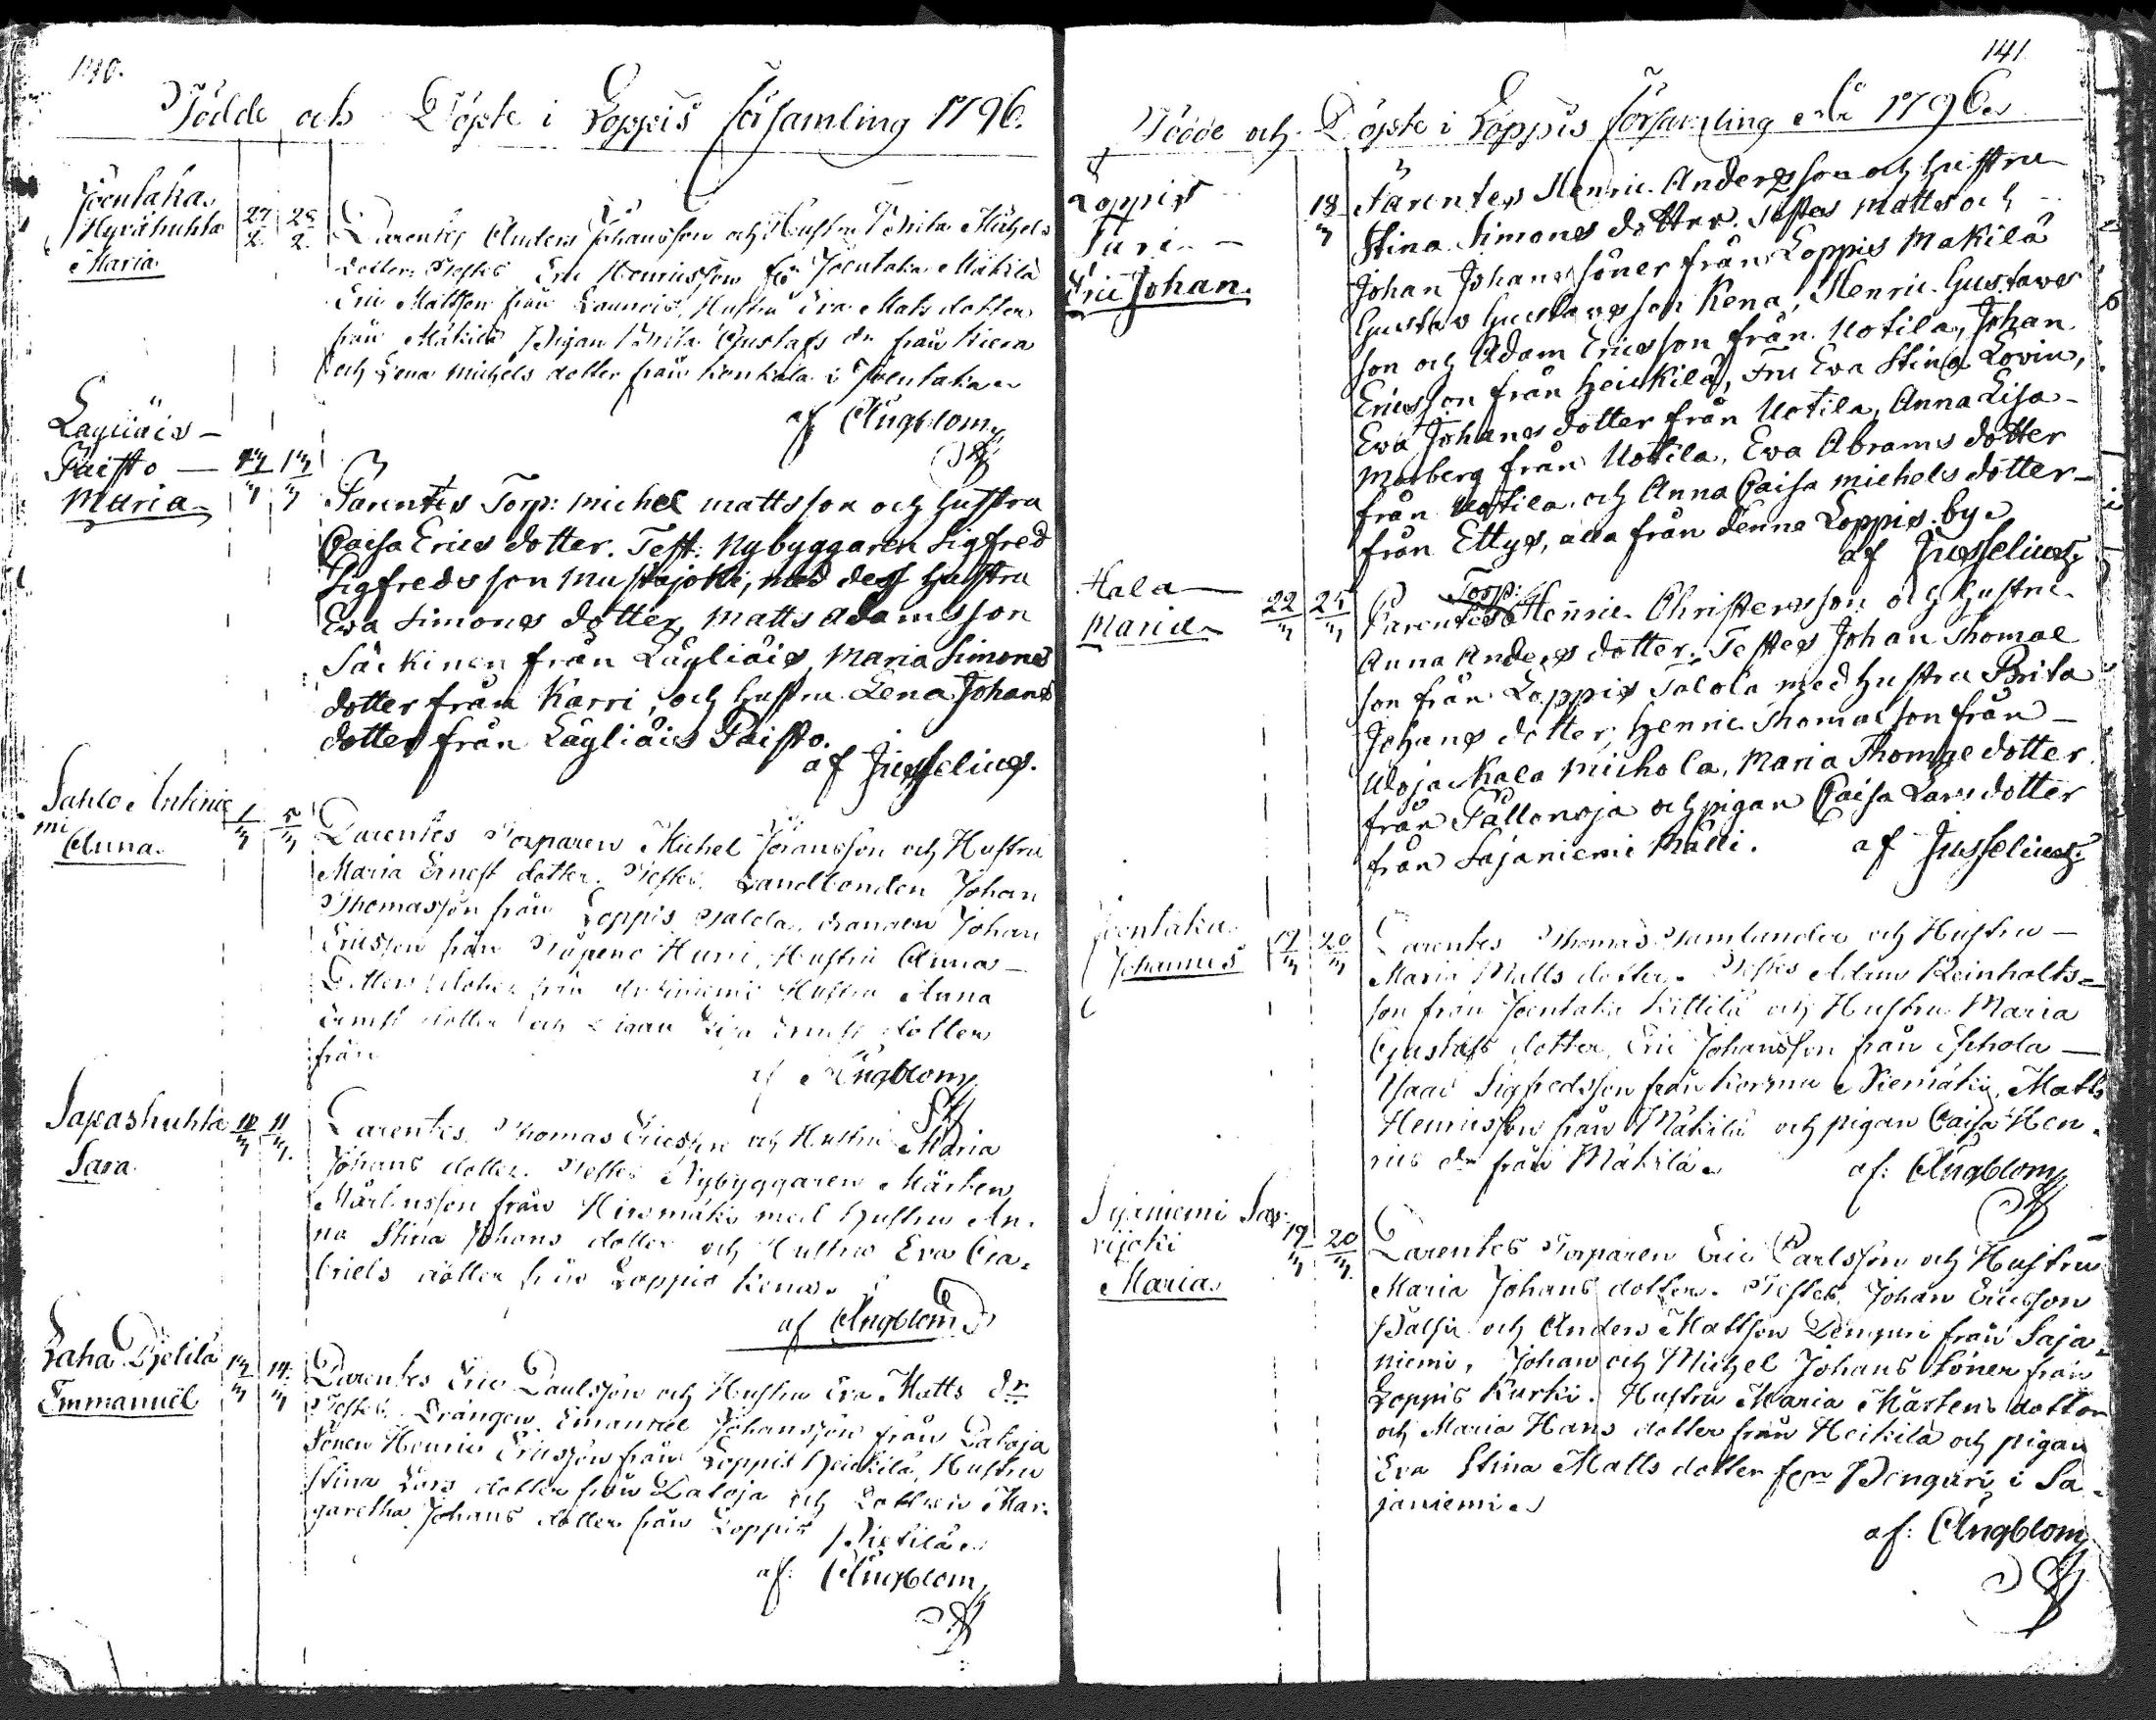 140.
Födde och Döpte i Loppis församling 1796.
Joentaka
Hyvähuhta
Maria
27/2 28/2
Parentes Anders Johansson och Hustru Brita Michels
dotter. Testes Eric Henricsson från Joentaka Mäkilä
Eric Mattson från Hustru Eva Mats dotter
från Mäkilä Pigan Brita Gustafs dr från Kiera
och Lena Michels dotter från i Joentaka
af Ångblom
Lagliäis
Paisto
Maria
Parentes Torp: Michel Mattsson och hustru
Caisa Erics dotter. Test: Nybyggaren Sigfred
Sigfredsson Mustajoki, med dess hustru
Eva Simons dotter, Matts Adamsson
Särkinen från Lagliäis, Maria Simons
dotter från Karri, och hustru Lena Johans
dotter från Lagliäis Paisto.
af Jusselius.
Anna.
1/3 5/3
Parentes Torparen Michel Johansson och Hustru
Maria Ernst dotter. Testes. Landbonden Johan
Thomasson från Loppis Talola, drängen Johan
Ericsson från Huni, Hustru Anna
dotter från Hustru Anna
Ernst dotter och Pigan Lisa Ernst dotter
från
af Ångblom
Sapashuhta
Sara
10/3 11/3.
Parentes Thomas Ericsson och Hustru Maria
Johans dotter. Testes Nybyggaren Mårten
Mårtensson från Hirsimäki med hustru An-
na Stina Johans dotter och Hustru Eva Ga-
briels dotter från Loppis Kena.
af Ångblom
Laha Pjetilä
Emmanuel
13/3 14/3
Parentes Eric Paulsson och Hustru Eva Matts dr
Testes. Drängen Emanuel Johansson från Pataja
Sonen Henric Ericsson från Loppis Heickilä, Hustru
Stina Lars dotter från Pataja och Mar-
garetha Johans dotter från Loppis Pietilä
af: Ångblom
141
Födde och Döpte i Loppis församling År 1796.
Loppis
Turi
Eric Johan.
18/3
Parentes Henric Andersson och hustru
Stina Simons dotter. Testes Matts och
Johan Johans söner från Loppis Makilä
Gustav Gustavsson Kena, Henric Gustavs
son och Adam Ericsson från Uotila, Johan
Ericsson från Heickilä, Fru Eva Stina Lovin,
Eva Johans dotter från Uotila, Anna Lisa
Morberg från Uotila, Eva Abrams dotter
från Uotila och Anna Caisa Michels dotter
från Ettys, alla från denna Loppis by
af Jusselius.
Hala
Maria
22/3 25/3
Torp:
Parentes Henric Christersson och hustru
Anna Anders dotter. Testes Johan Thomae
son från Loppis Talola med hustru Brita
Johans dotter, Henric Thomasson från
Wojackala Michola, Maria Thomae dotter
från Pällonoja och pigan Caisa Lars dotter
från Sajaniemi Mälli. af Jusselius.
Joentaka
Johannes
19/3 20/3
Parentes Thomas Tamlander och Hustru
Maria Matts dotter. Testes Adam Reinholts-
son från Joentaka Kittilä och Hustru Maria
Gustafs dotter, Eric Johansson från
Isaac Sigfredsson från Matts
Henricsson från Mäkilä och pigan Caisa Hen-
rics dr från Mäkilä af: Ångblom
Sajaniemi
rijoki
Maria
19/3 20/3.
Parentes Torparen Eric Carlsson och Hustru
Maria Johans dotter. Testes. Johan Ericsson
och Anders Mattson från Saja-
niemi, Johan och Michel Johans söner från
Loppis Kurki. Hustru Maria Mårtens dotter
och Maria Hans dotter från Heikilä och pigan
Eva Stina Matts dotter från i Sa-
janiemi
af: Ångblom